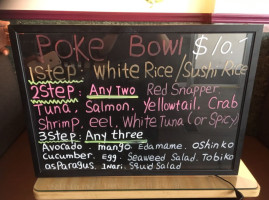 Poke Bowl $10.-
1Step: White Rice/Sushi Rice
2Step: Any Two Red Snapper
Tuna. Salmon. Yellowtail. Crab
Shrimp. eel. White Tuna (or Spicy)
3Step: Any three
Avocado. mango. Edamame. Oshinko
Cucumber. Egg. Seaweed Salad. Tobiko
asparagus. Inari. Squid Salad